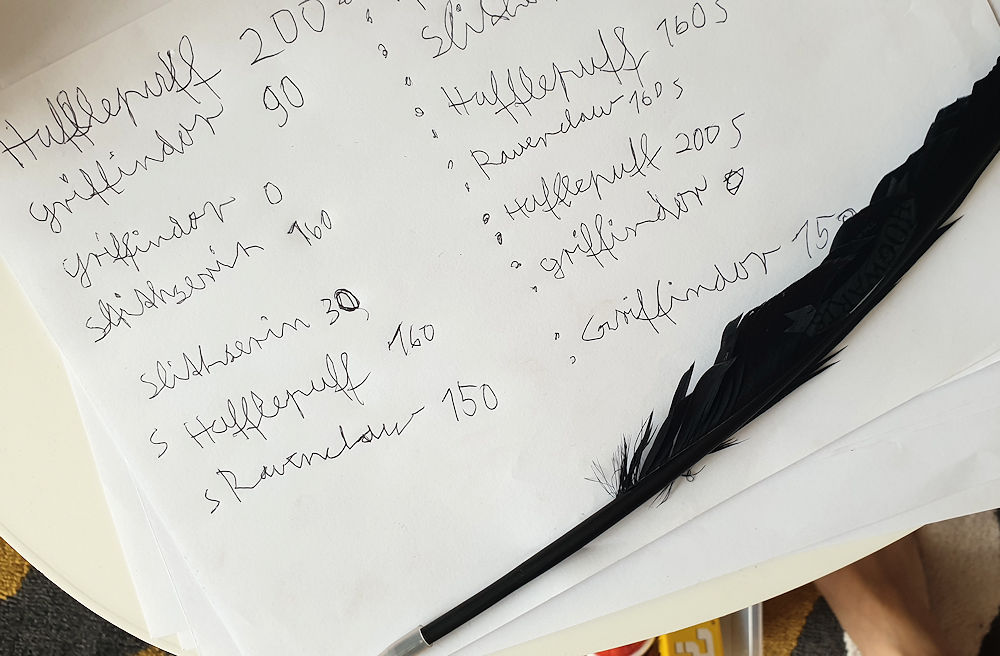 Hafflepuff 200
griffindor 90
griffindor 0
slithserin 160
slithserin 30
s Hafflepuff 160
s Ravenclaw 150
Hafflepuff 160 s
Ravenclaw 160 s
Hafflepuff 200 s
griffindor 0
Griffindor 150